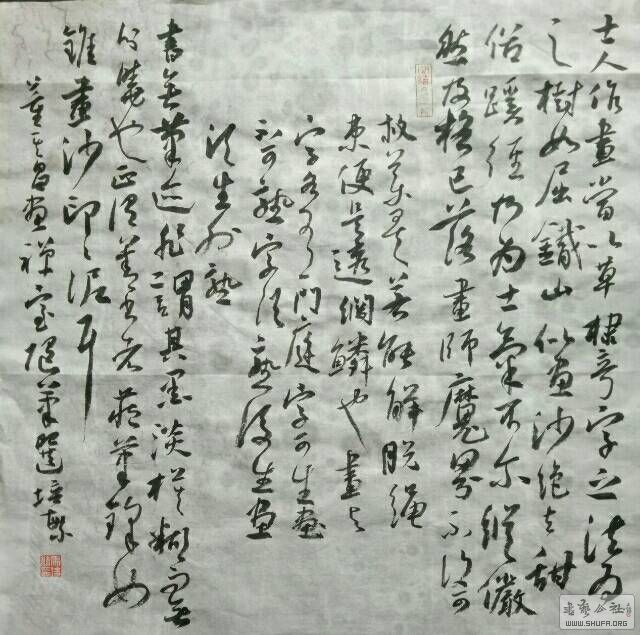 士人作畫當以草棣奇字之法為
之樹如屈鐵山似畫沙絕去甜
俗蹊徑乃為士氣不尔縱儼
然及格已落畫師魔界不復可
救藥矣若能解脫繩
束便是透網鱗也畫與
字各有門庭字可生畫
不可熟字須熟後生畫
須生外熟
書無筆迹非謂其墨淡模糊而無
分曉也正如善書者藏筆鋒如
錐畫沙印〻泥耳
董其昌畫禪室隨筆選培
書藝公社
WWW.SHUFA.ORG